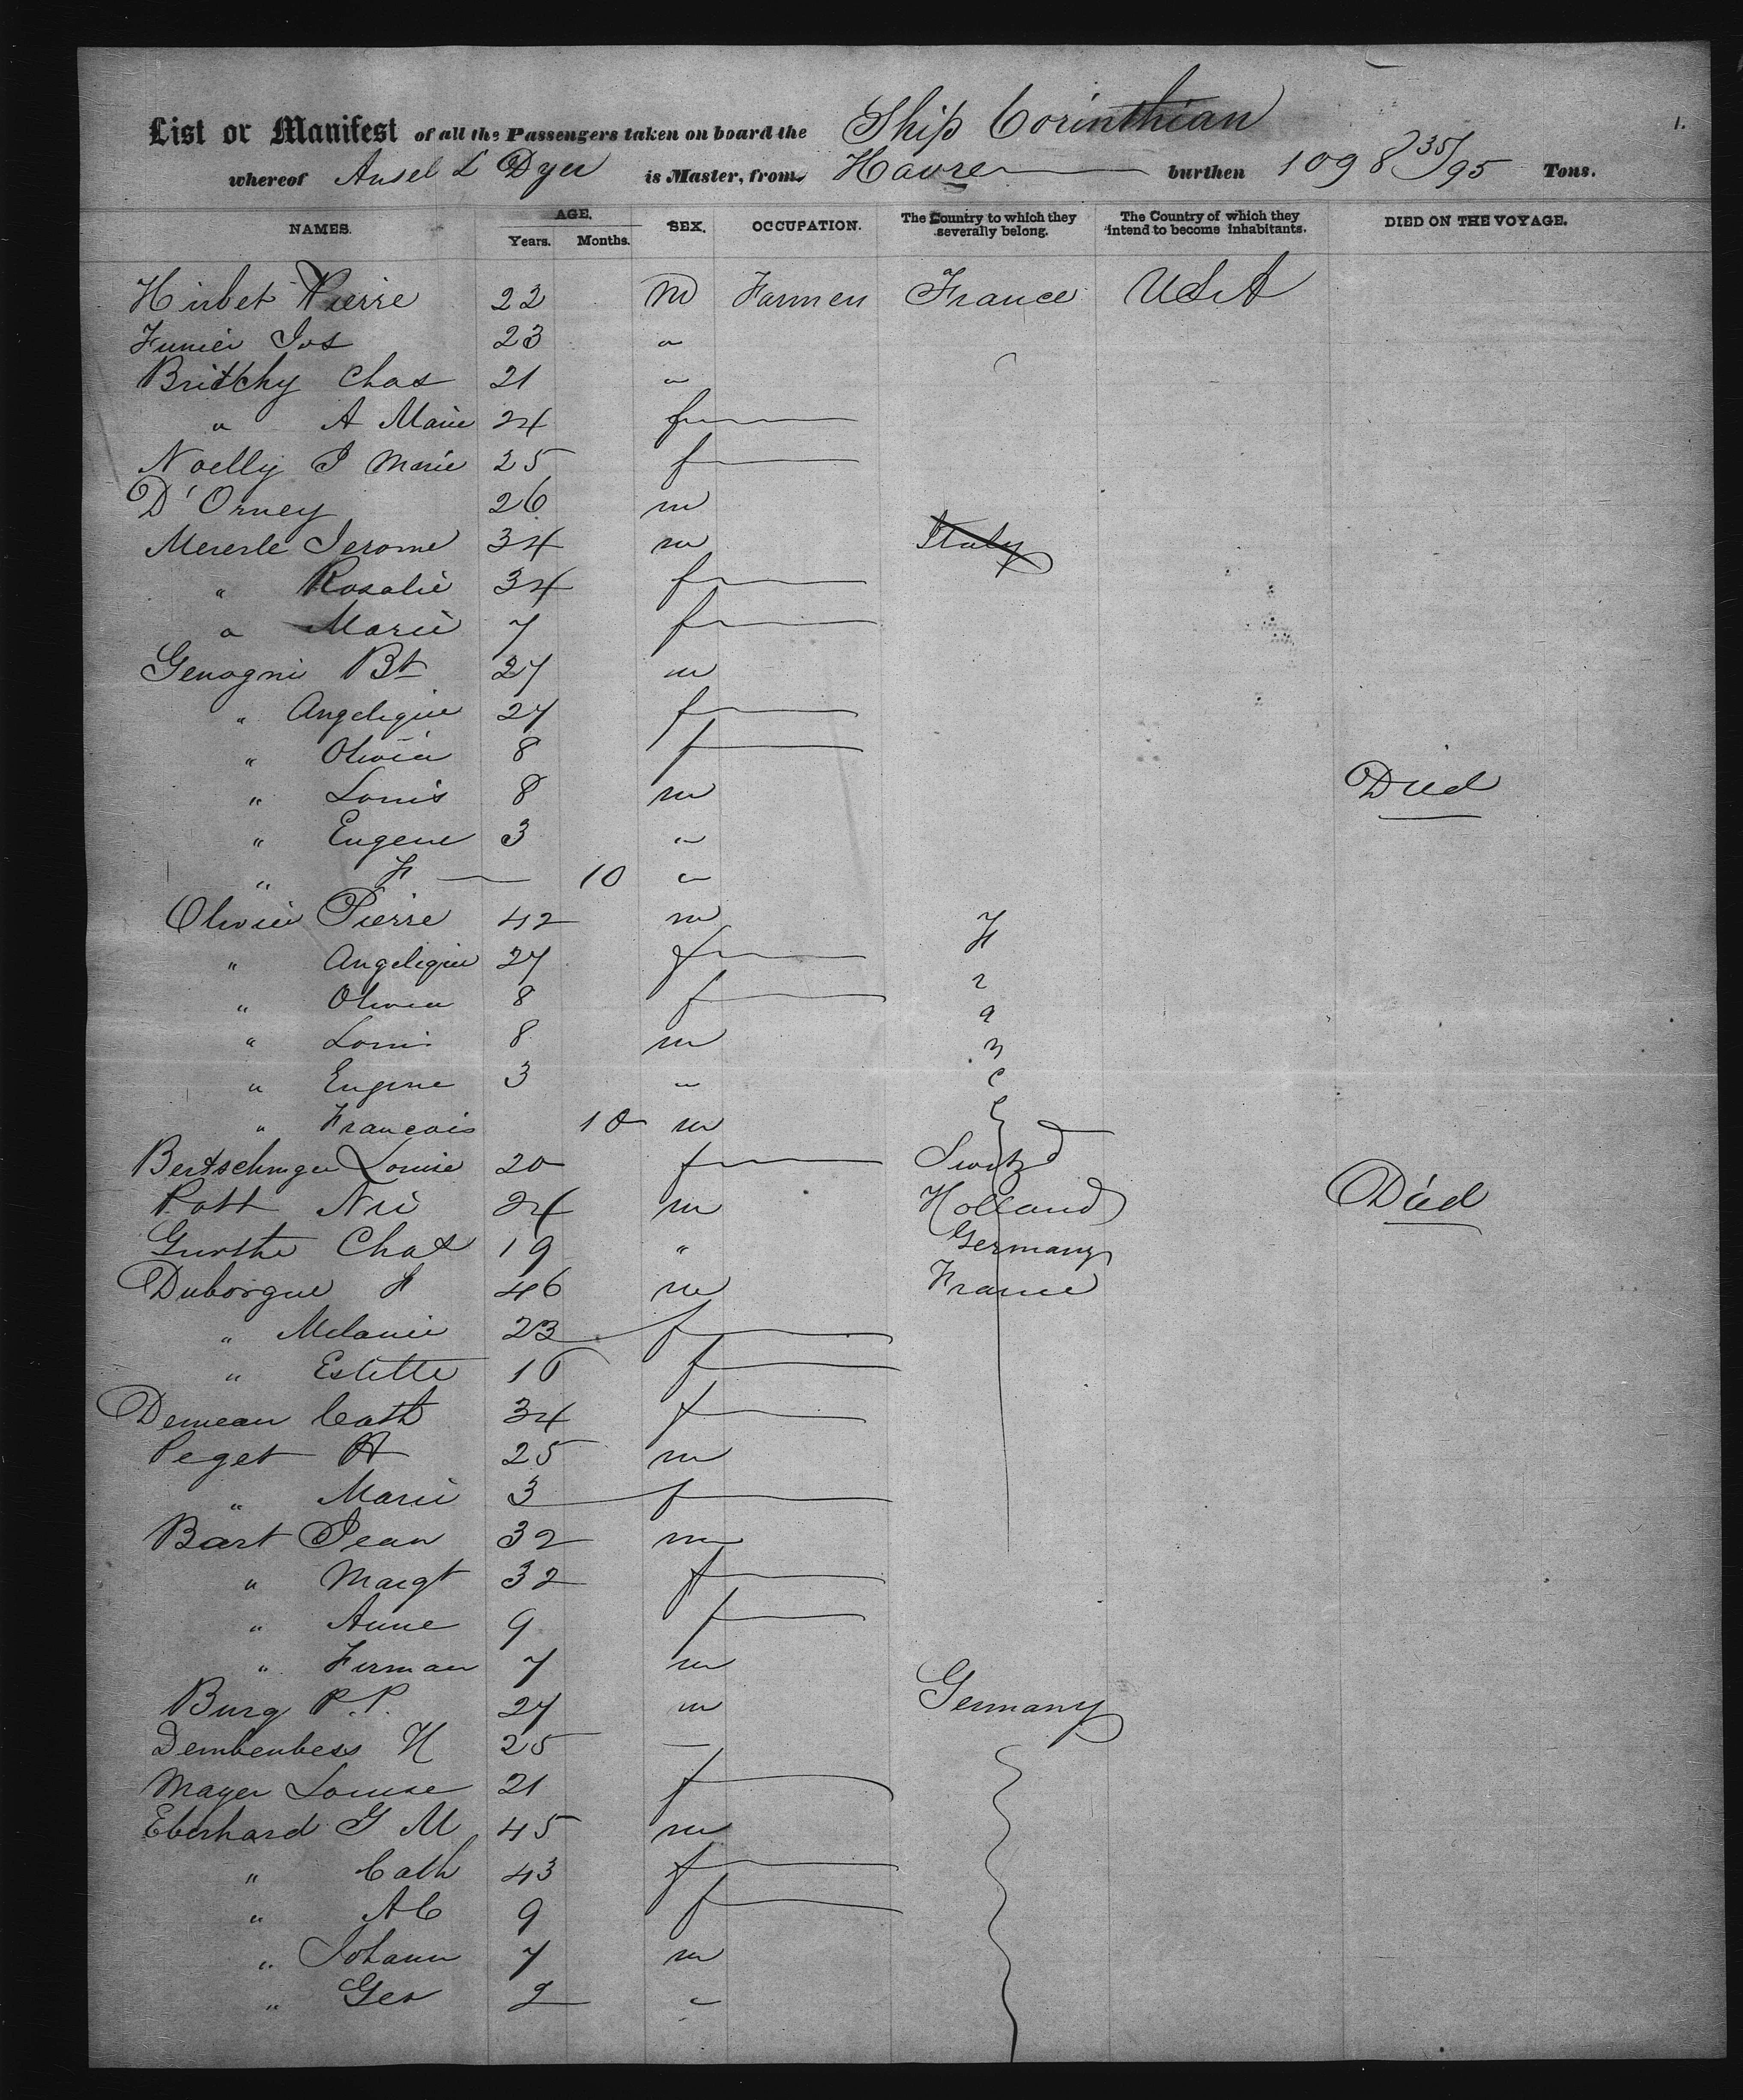 1.
List or Manifest of all the Passengers taken on board the Ship Corinthian
whereof Ansel L Dyer is Master, from Havre burthen 1098 35/95 Tons.
NAMES. AGE. Years. Months. SEX. OCCUPATION. The Country to which they severally belong. The Country of which they intend to become inhabitants. DIED ON THE VOYAGE.
Hirbet Pierre 22 m Farmer France USA
Junier Jos 23 "
Britchy Chas 21 "
" A Marie 24 f
Noelly J Marie 25 f
D'Orney 26 m
Mererle Jerome 34 m Italy
" Rosalie 34 f
" Marie 7 f
Genogni Bt 27 m
" Angelique 27 f
" Olivia 8 f
" Louis 8 m Died
" Eugene 3 "
" F 10 "
Olivier Pierre 42 m F
" Angelique 27 f r
" Olivia 8 f a
" Louis 8 m n
" Eugene 3 " c
" Francois 10 m e
Bertschinger Louise 20 f Switzd
Pott Nic 24 m Holland Died
Gursthe Chas 19 " Germany
Duborgue F 46 m France
" Melanie 23 f
" Estette 16 f
Demeau Cath 34 f
Peget A 25 m
" Marie 3 f
Bart Jean 32 m
" Margt 32 f
" Anne 9 f
" Firman 7 m
Burg P.P. 27 m Germany
Dembenbess H 25 —
Mayer Louise 21 f
Eberhard G M 45 m
" Cath 43 f
" A C 9 f
" Johann 7 m
" Geo 2 "